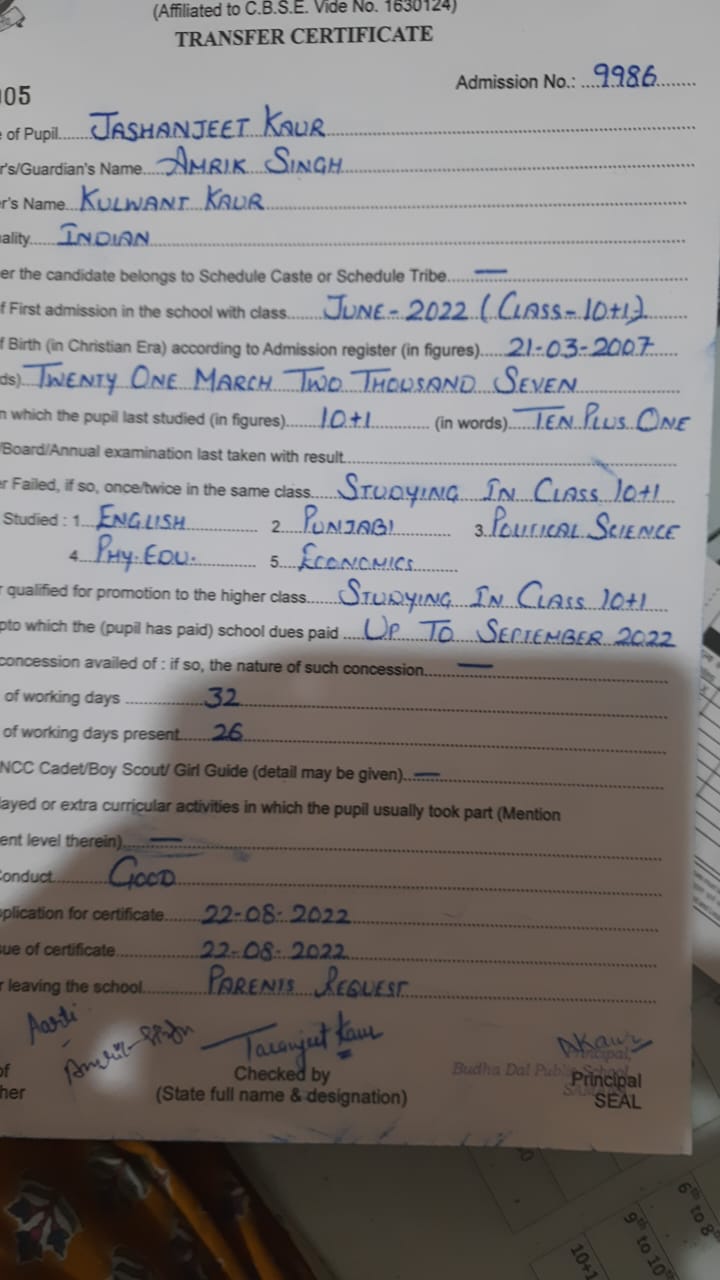 (Affiliated to C.B.S.E. Vide No. 1630124)
TRANSFER CERTIFICATE
Admission No.: 9986
005
of Pupil JASHANJEET KAUR
r's/Guardian's Name AMRIK SINGH
r's Name KULWANT KAUR
ality INDIAN
er the candidate belongs to Schedule Caste or Schedule Tribe —
f First admission in the school with class JUNE-2022 (CLASS-10+1)
f Birth (in Christian Era) according to Admission register (in figures) 21-03-2007
ds) TWENTY ONE MARCH TWO THOUSAND SEVEN
n which the pupil last studied (in figures) 10+1 (in words) TEN PLUS ONE
/Board/Annual examination last taken with result
r Failed, if so, once/twice in the same class STUDYING IN CLASS 10+1
Studied : 1 ENGLISH 2 PUNJABI 3. POLITICAL SCIENCE
4. PHY. EDU. 5. ECONOMICS
r qualified for promotion to the higher class STUDYING IN CLASS 10+1
pto which the (pupil has paid) school dues paid UP TO SEPTEMBER 2022
concession availed of : if so, the nature of such concession —
of working days 32
of working days present 26
NCC Cadet/Boy Scout/ Girl Guide (detail may be given) —
layed or extra curricular activities in which the pupil usually took part (Mention
ent level therein) —
Conduct GOOD
plication for certificate 22-08-2022
sue of certificate 22-08-2022
r leaving the school PARENTS REQUEST
Aarti Amrik Singh Taranjeet Kaur AKaur
Principal,
Budha Dal Public School
of Checked by Principal
her (State full name & designation) SEAL
6th to 8th
9th to 10th
10+1